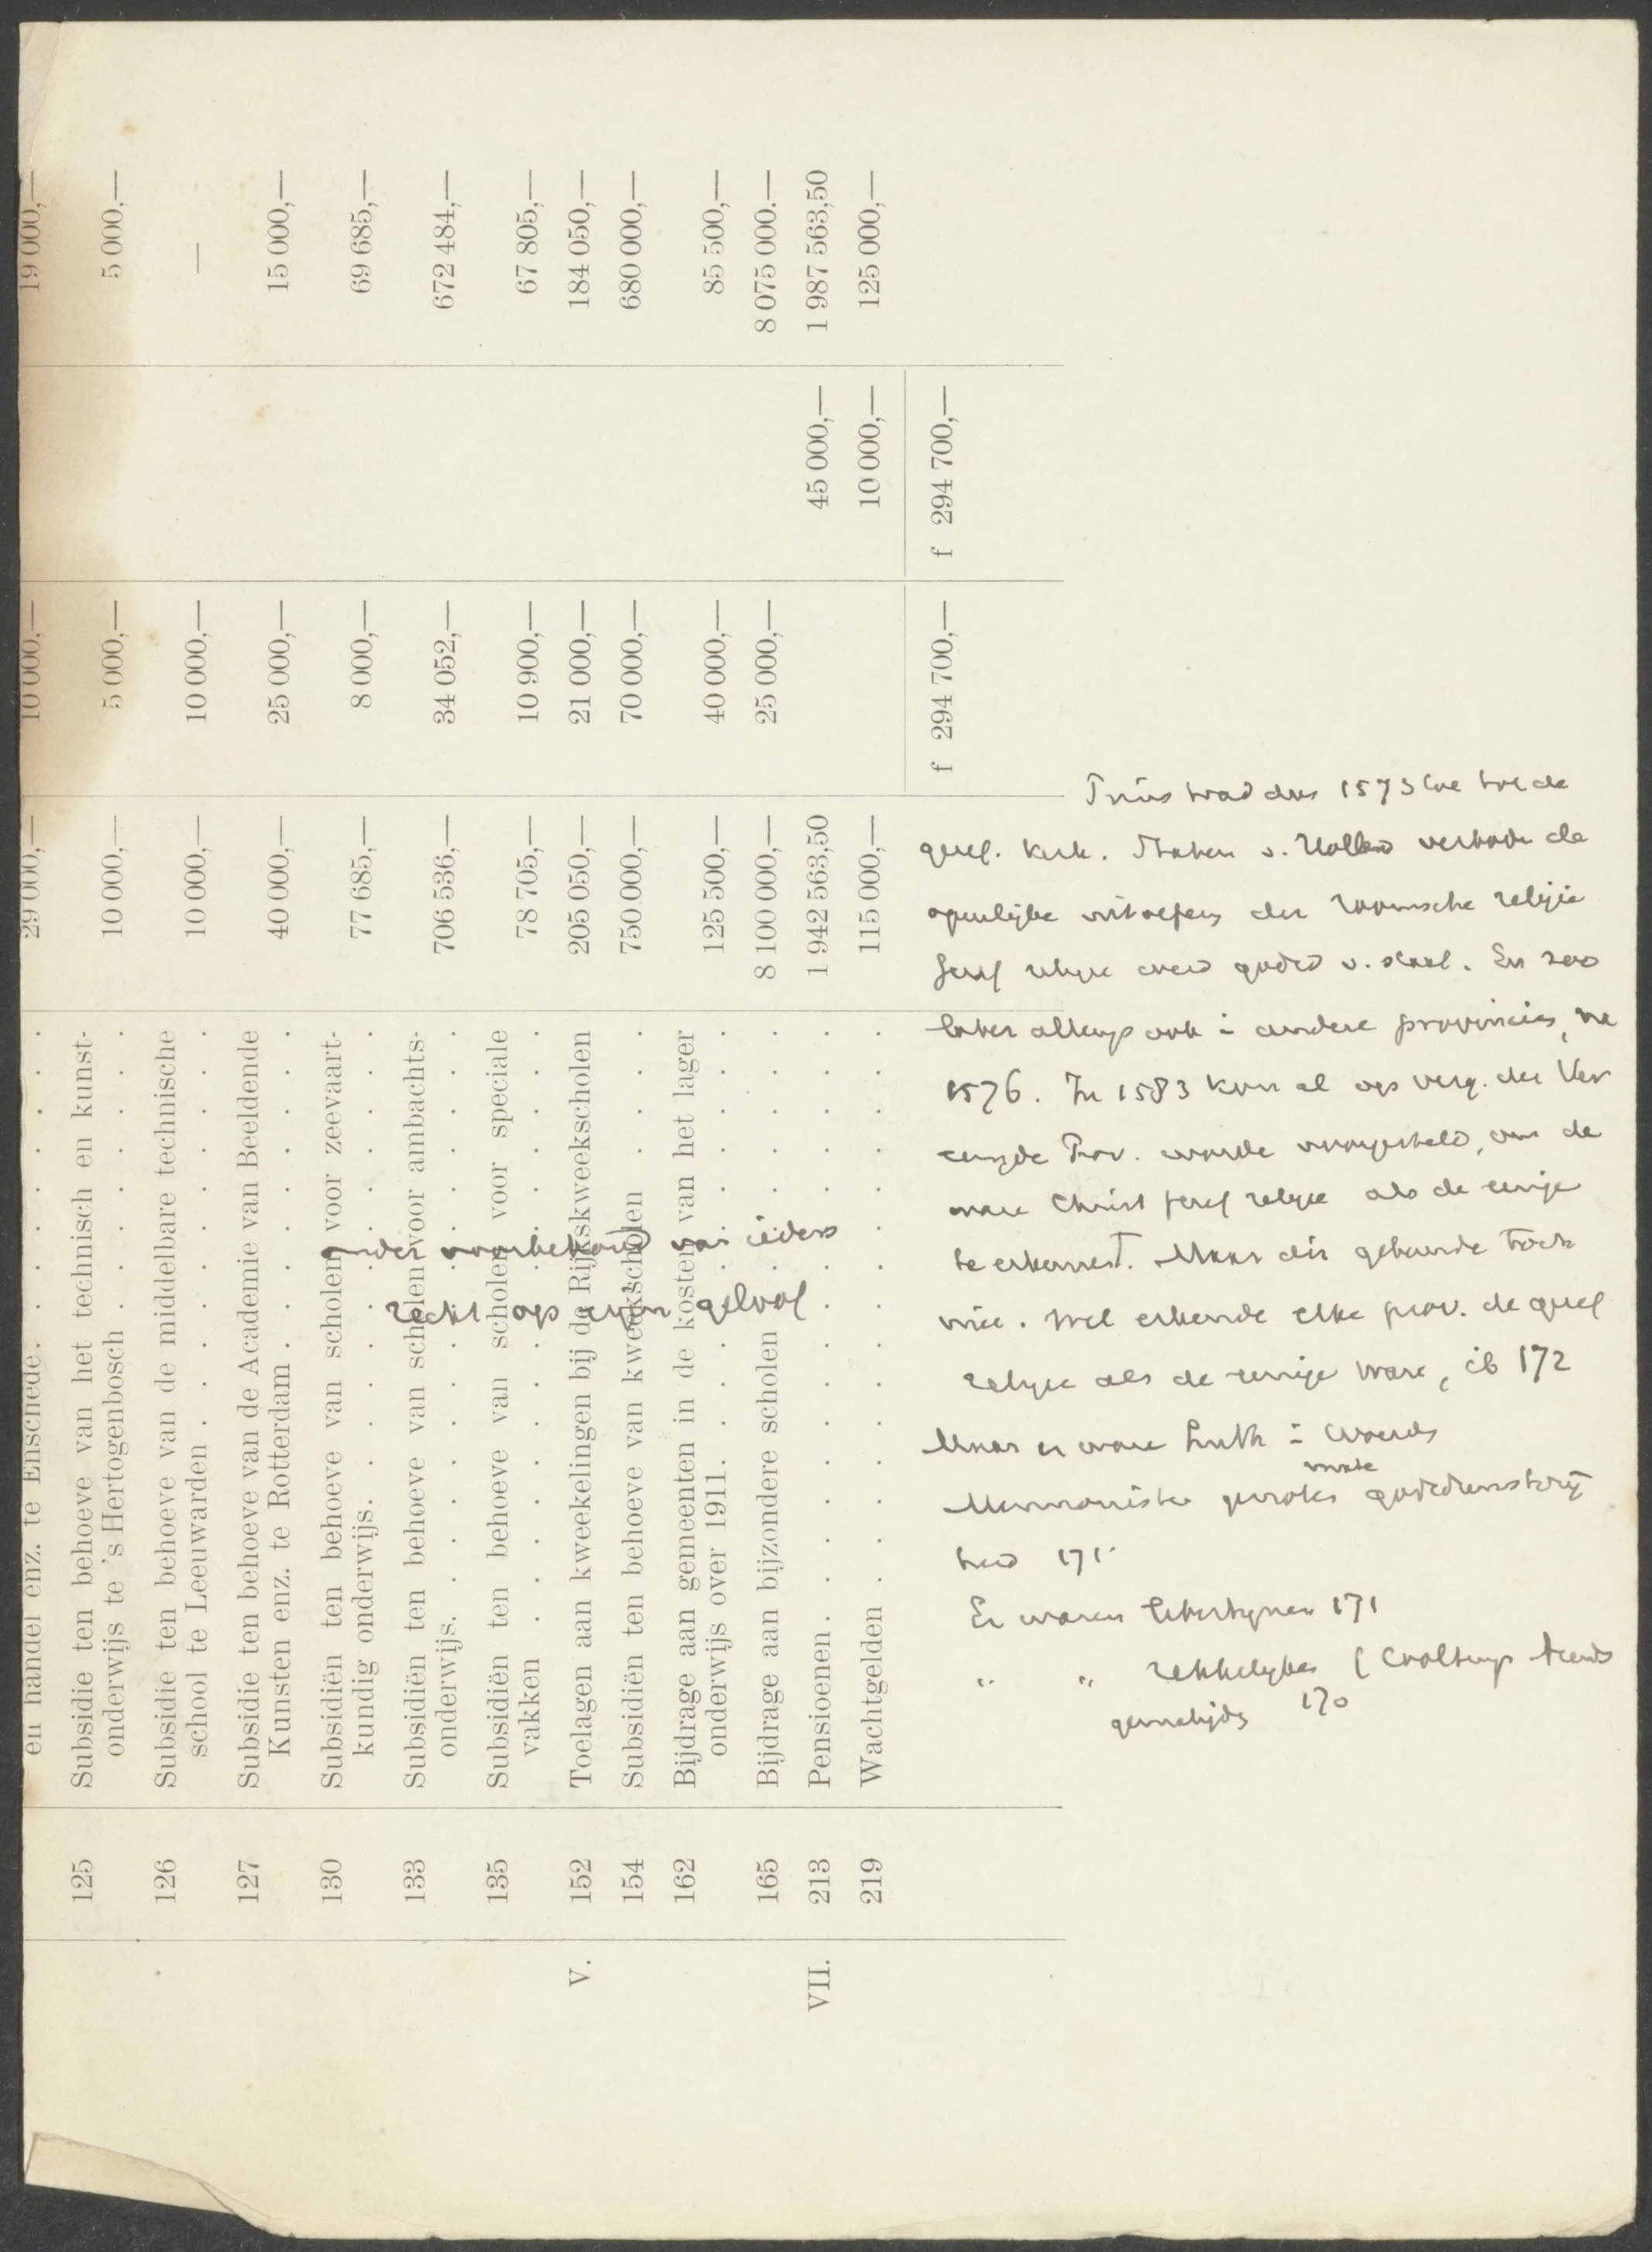 en handel enz. te Enschede. 29 000,— 10 000,— 19 000,—
125 Subsidie ten behoeve van het technisch en kunst-
onderwijs te 's Hertogenbosch 10 000,— 5 000,— 5 000,—
126 Subsidie ten behoeve van de middelbare technische
school te Leeuwarden 10 000,— 10 000,— —
127 Subsidie ten behoeve van de Academie van Beeldende
Kunsten enz. te Rotterdam 40 000,— 25 000,— 15 000,—
130 Subsidiën ten behoeve van scholen voor zeevaart-
kundig onderwijs. 77 685,— 8 000,— 69 685,—
133 Subsidiën ten behoeve van scholen voor ambachts-
onderwijs. 706 536,— 34 052,— 672 484,—
135 Subsidiën ten behoeve van scholen voor speciale
vakken 78 705,— 10 900,— 67 805,—
V. 152 Toelagen aan kweekelingen bij de Rijkskweekscholen 205 050,— 21 000,— 184 050,—
154 Subsidiën ten behoeve van kweekscholen 750.000,— 70 000,— 680 000,—
162 Bijdrage aan gemeenten in de kosten van het lager
onderwijs over 1911. 125 500,— 40 000,— 85 500,—
165 Bijdrage aan bijzondere scholen 8 100 000,— 25 000,— 8 075 000.—
VII. 213 Pensioenen 1 942 563,50 45 000,— 1 987 563,50
219 Wachtgelden 115 000,— 10 000,— 125 000,—
f 294 700,— f 294 700,—
onder voorbehoud van ieders
recht op zijn geloof
Prins trad dus 1573 toe tot de
geref. kerk. Staten v. Holland verboden de
openlijke uitoefeng der roomsche religie
Geref religie werd godsd v. staat. En zoo
later allengs ook in andere provincies, na
1576. In 1583 kon al op verg. der Ver
eenigde Prov. worde voorgesteld, om de
ware Christ geref religie als de eenige
te erkennen. Maar dit gebeurde toch
niet. Wel erkende elke prov. de geref
religie als de eenige ware, ib 172
Maar er ware Luth in Woerden
Mennonisten genoten godsdienstvrij
heid 171
Er waren libertijnen 171
" " rekkelijken
170